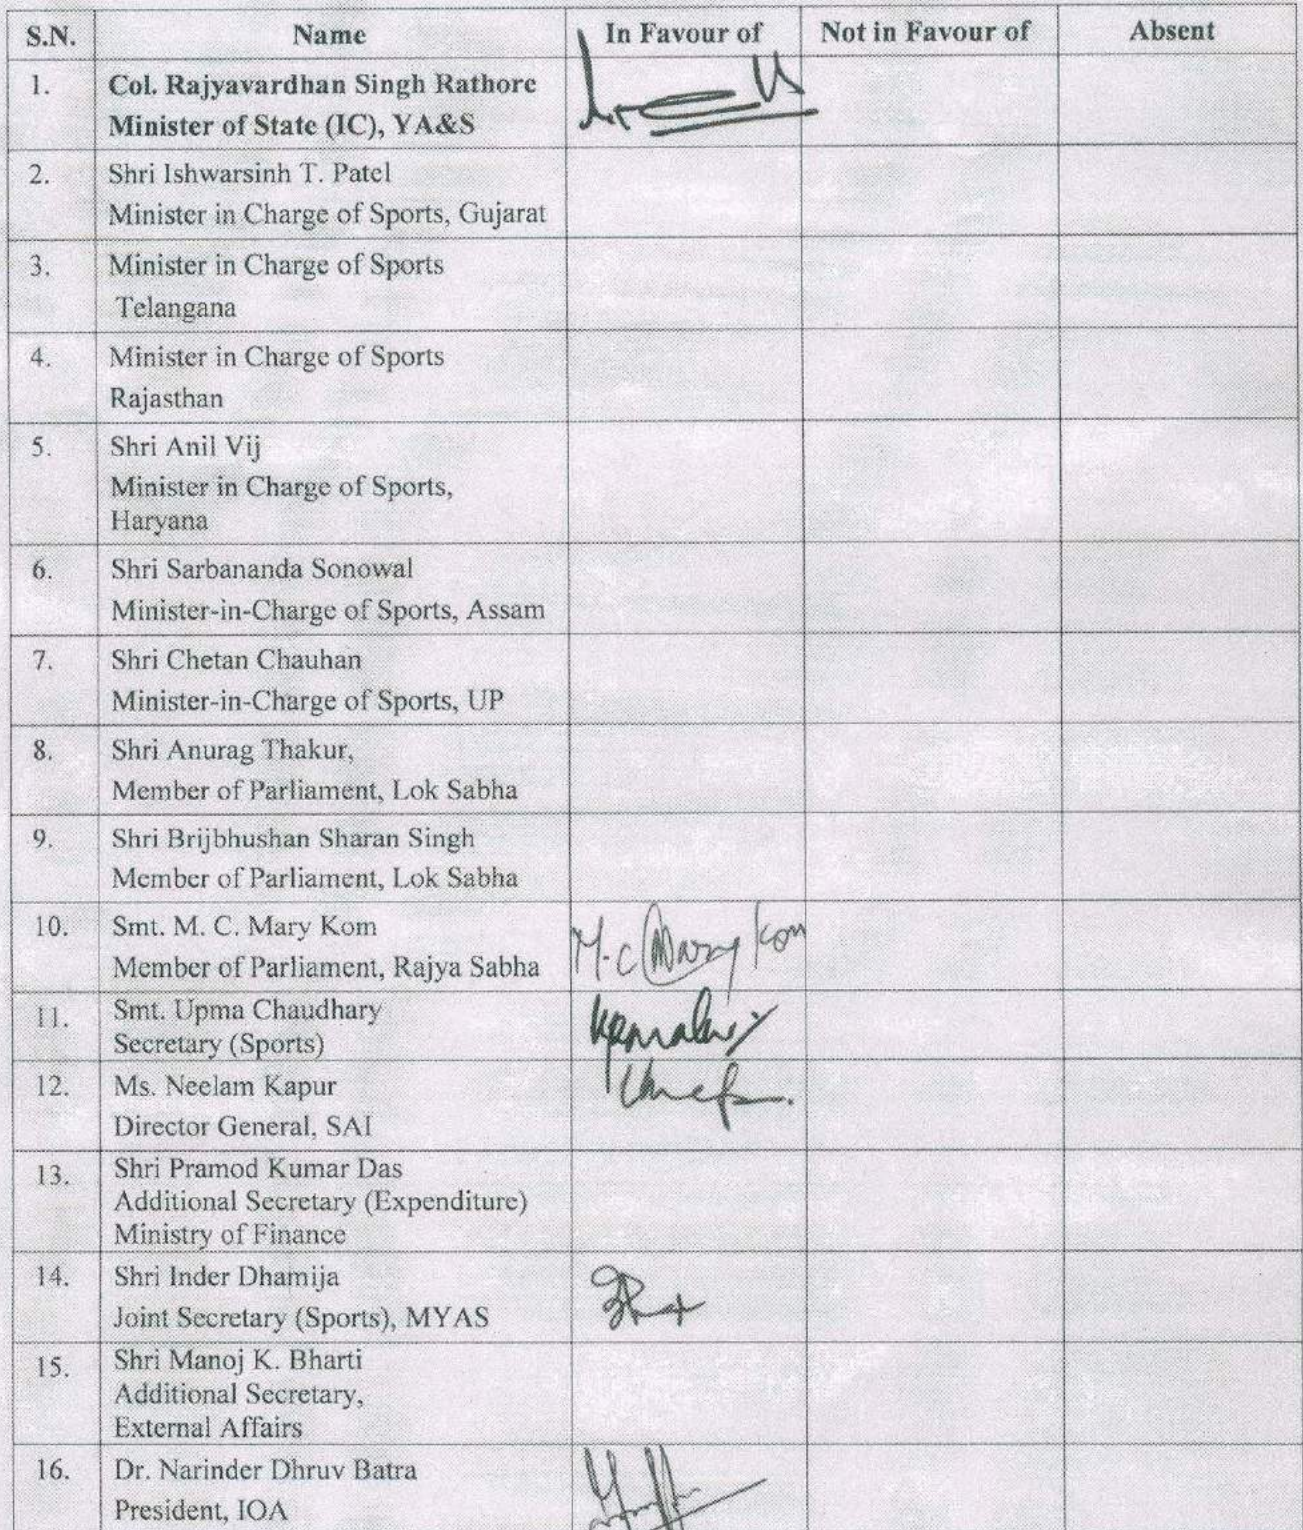 S.N. Name In Favour of Not in Favour of Absent
1. Col. Rajyavardhan Singh Rathore
Minister of State (IC), YA&S
2. Shri Ishwarsinh T. Patel
Minister in Charge of Sports, Gujarat
3. Minister in Charge of Sports
Telangana
4. Minister in Charge of Sports
Rajasthan
5. Shri Anil Vij
Minister in Charge of Sports,
Haryana
6. Shri Sarbananda Sonowal
Minister-in-Charge of Sports, Assam
7. Shri Chetan Chauhan
Minister-in-Charge of Sports, UP
8. Shri Anurag Thakur,
Member of Parliament, Lok Sabha
9. Shri Brijbhushan Sharan Singh
Member of Parliament, Lok Sabha
10. Smt. M. C. Mary Kom
Member of Parliament, Rajya Sabha M.C Mary Kom
11. Smt. Upma Chaudhary
Secretary (Sports)
12. Ms. Neelam Kapur
Director General, SAI
13. Shri Pramod Kumar Das
Additional Secretary (Expenditure)
Ministry of Finance
14. Shri Inder Dhamija
Joint Secretary (Sports), MYAS
15. Shri Manoj K. Bharti
Additional Secretary,
External Affairs
16. Dr. Narinder Dhruv Batra
President, IOA